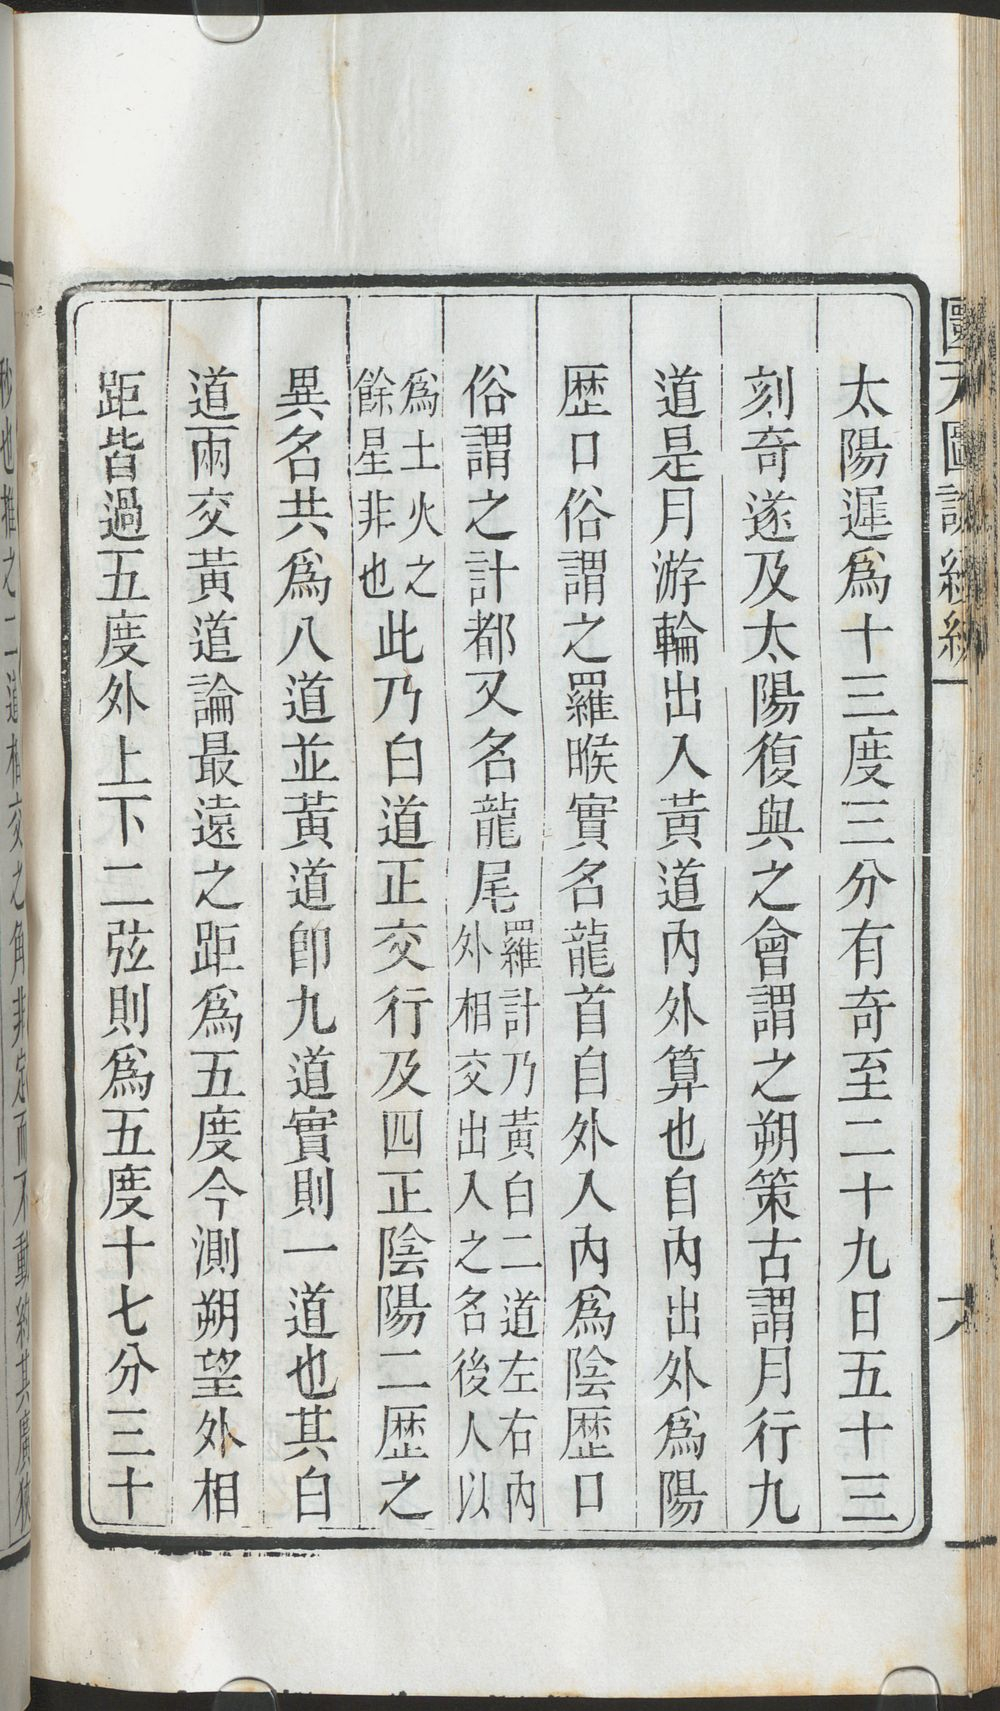 太陽遲爲十三度三分有奇至二十九日五十三
刻奇遂及太陽復與之會謂之朔策古謂月行九
道是月游輪出入黃道內外算也自內出外爲陽
歴口俗謂之羅睺實名龍首自外入內爲陰歴口
俗謂之計都又名龍尾羅計乃黃白二道左右內外相交出入之名後人以
爲土火之餘星非也此乃白道正交行及四正陰陽二歴之
異名共爲八道並黃道卽九道實則一道也其白
道兩交黃道論最遠之距爲五度今測朔望外相
距皆過五度外上下二弦則爲五度十七分三十
秒也推之二道相交之角非定而不動約其廣狹